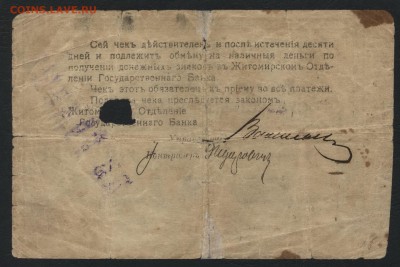 СОИН.SU
Сей чекъ дѣйствителенъ и послѣ истеченія десяти
дней и подлежитъ обмѣну на наличныя деньги по
полученіи денежныхъ знаковъ въ Житомирскомъ Отдѣ-
леніи Государственнаго Банка
Чекъ этотъ обязателенъ къ пріему во всѣ платежи.
чека преслѣдуется закономъ.
Отдѣленіе
Государственнаго Банка
Контролеръ